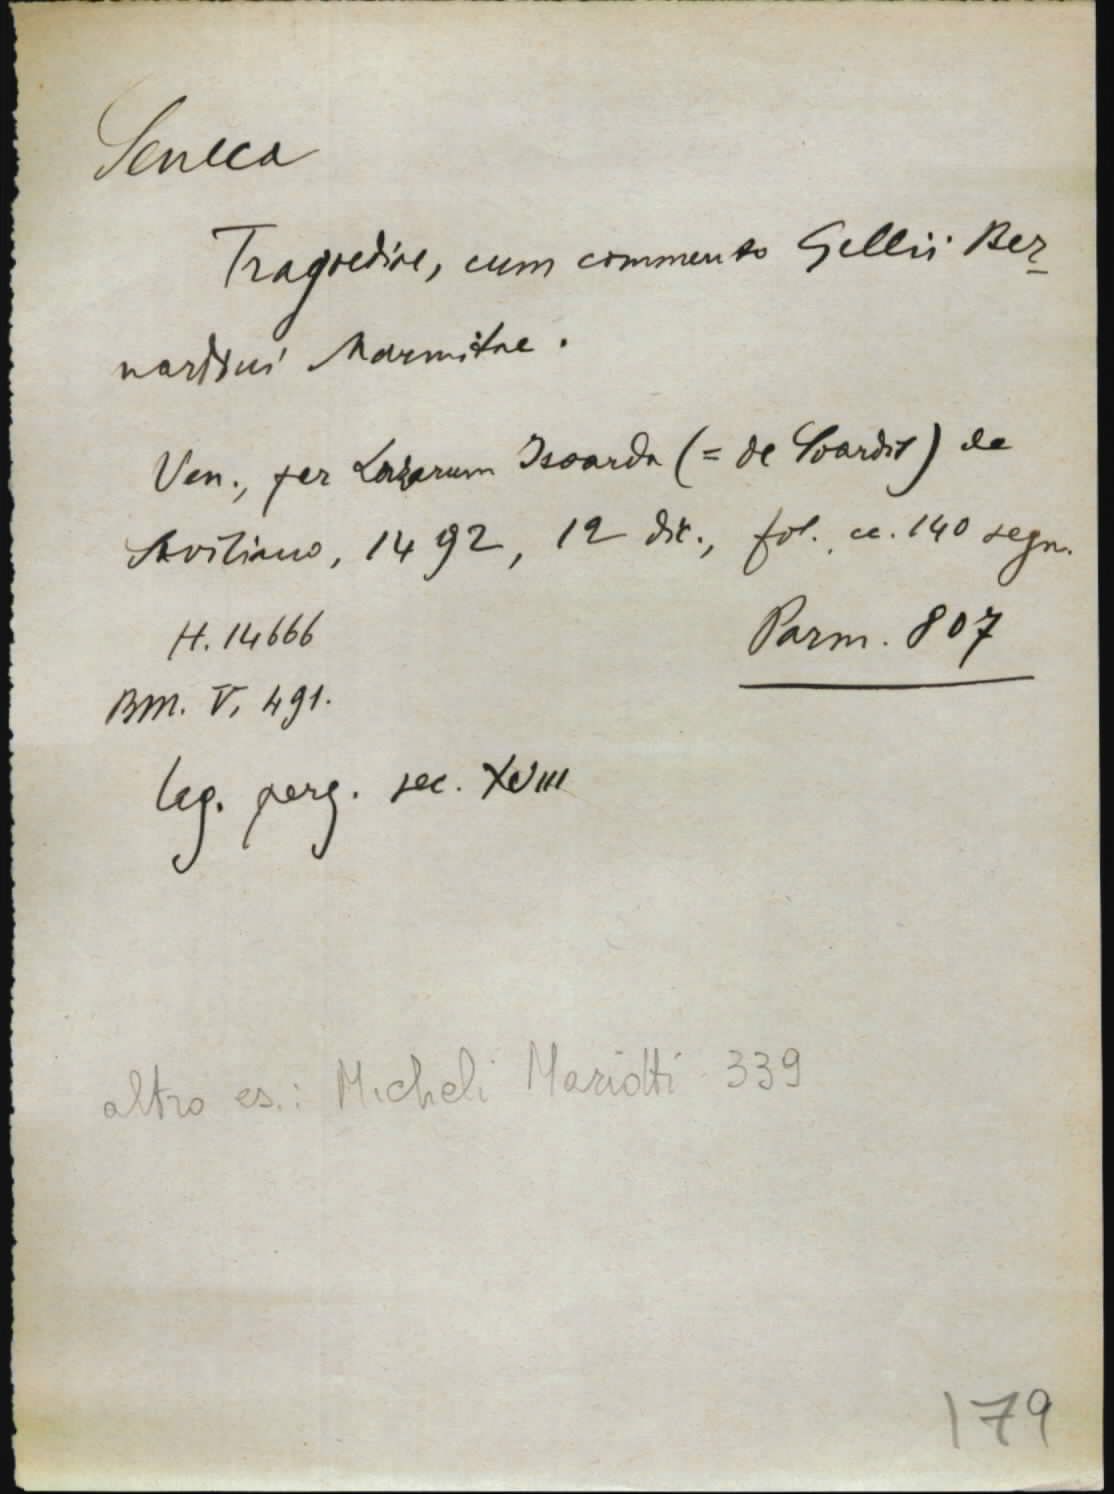 Seneca
Tragoediae, cum commento Gellii Ber-
nardini Marmitae.
Ven., per Lazarum Isoarda (= de Soardis) de
Saviliano, 1492, 12 dic., fol. cc. 140 segn.
H. 14666
Parm. 807
BM. V, 491.
leg. perg. sec. XVIII
altro es.: Micheli Mariotti 339
179